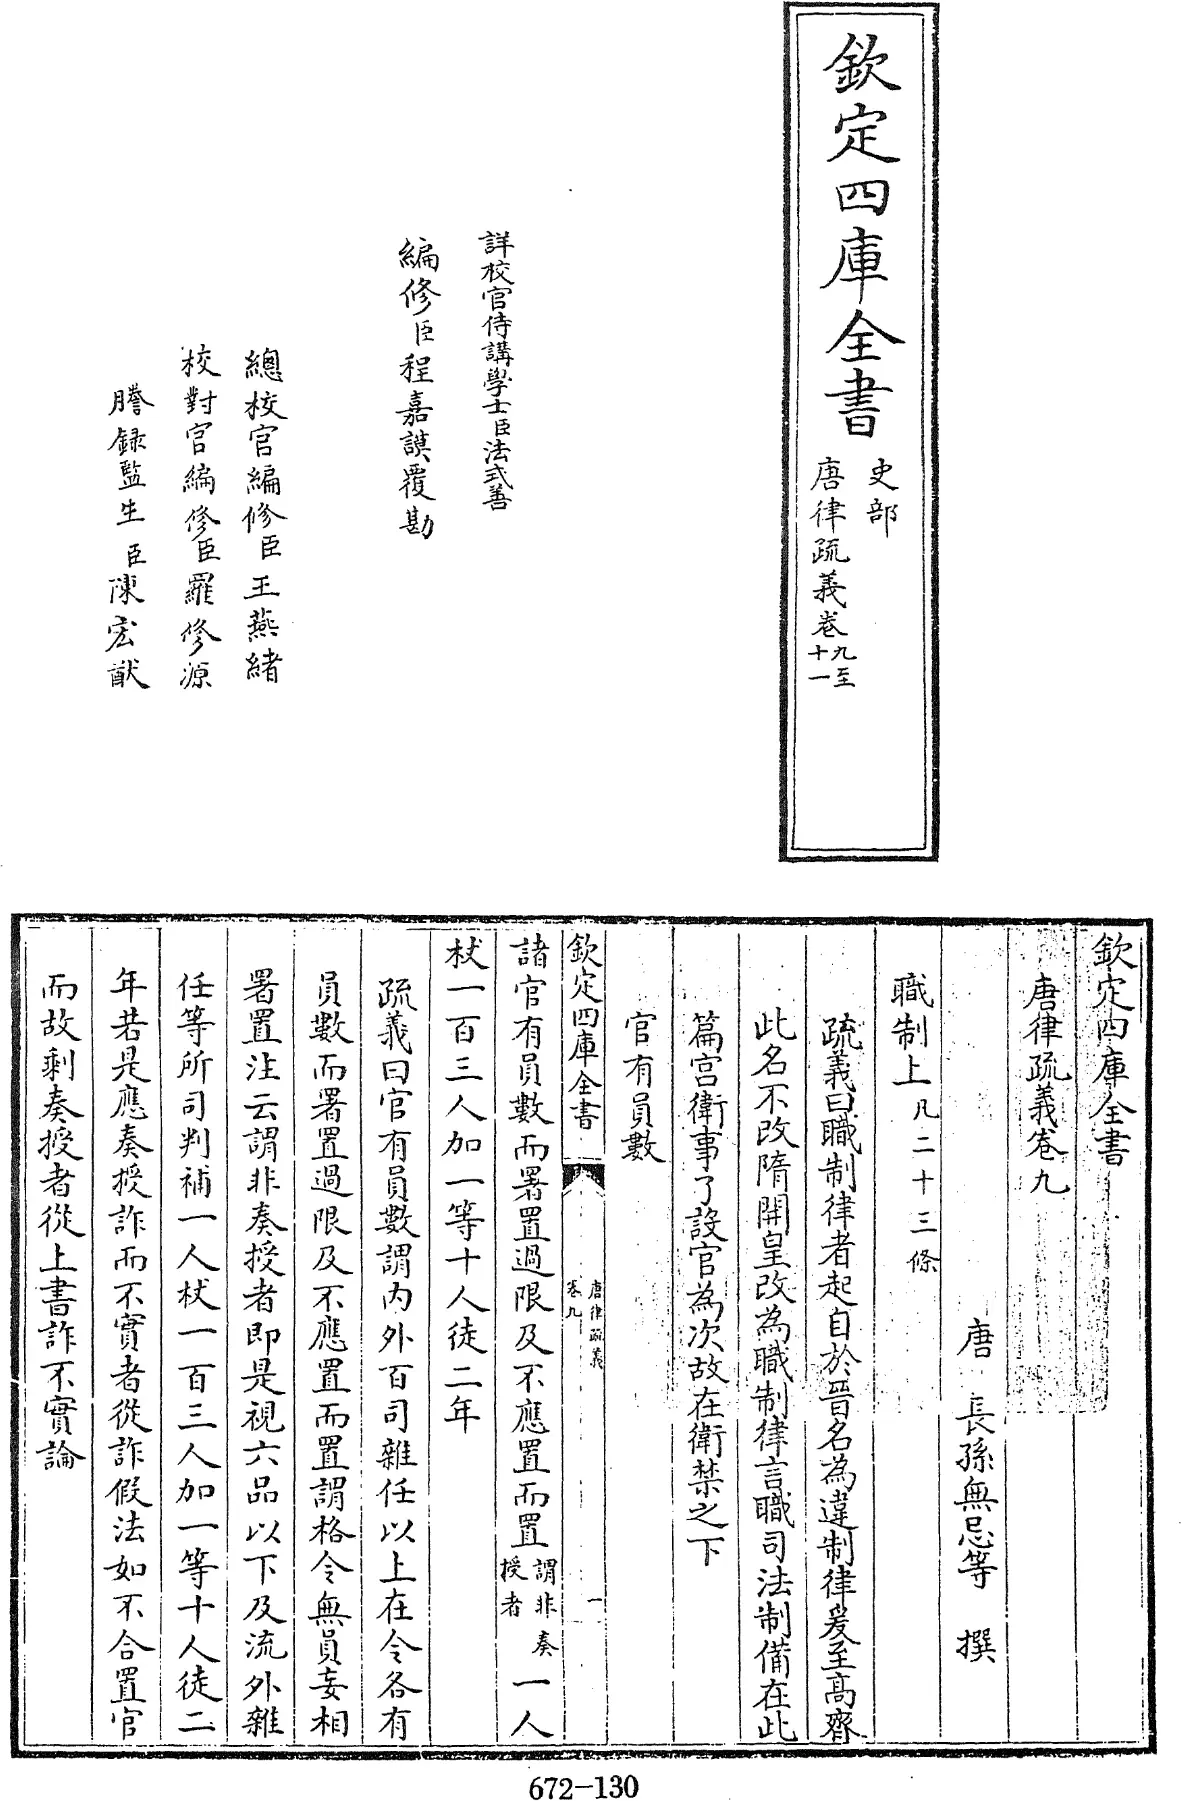 欽定四庫全書
史部
唐律疏義卷九至十一
詳校官侍講學士臣法式善
編修臣程嘉謨覆勘
總校官編修臣王燕緒
校對官編修臣羅修源
謄録監生臣陳宏猷
欽定四庫全書
唐律疏義卷九
唐 長孫無忌等 撰
職制上凡二十三條
疏義曰職制律者起自於晉名為違制律爰至高齊
此名不改隋開皇改為職制律言職司法制備在此
篇宮衛事了設官為次故在衛禁之下
官有員數
欽定四庫全書
唐律疏義
卷九
一
諸官有員數而署置過限及不應置而置謂非奏授者一人
杖一百三人加一等十人徒二年
疏義曰官有員數謂内外百司雜任以上在令各有
員數而署置過限及不應置而置謂格令無員妄相
署置注云謂非奏授者即是視六品以下及流外雜
任等所司判補一人杖一百三人加一等十人徒二
年若是應奏授詐而不實者從詐假法如不合置官
而故剩奏授者從上書詐不實論
672-130